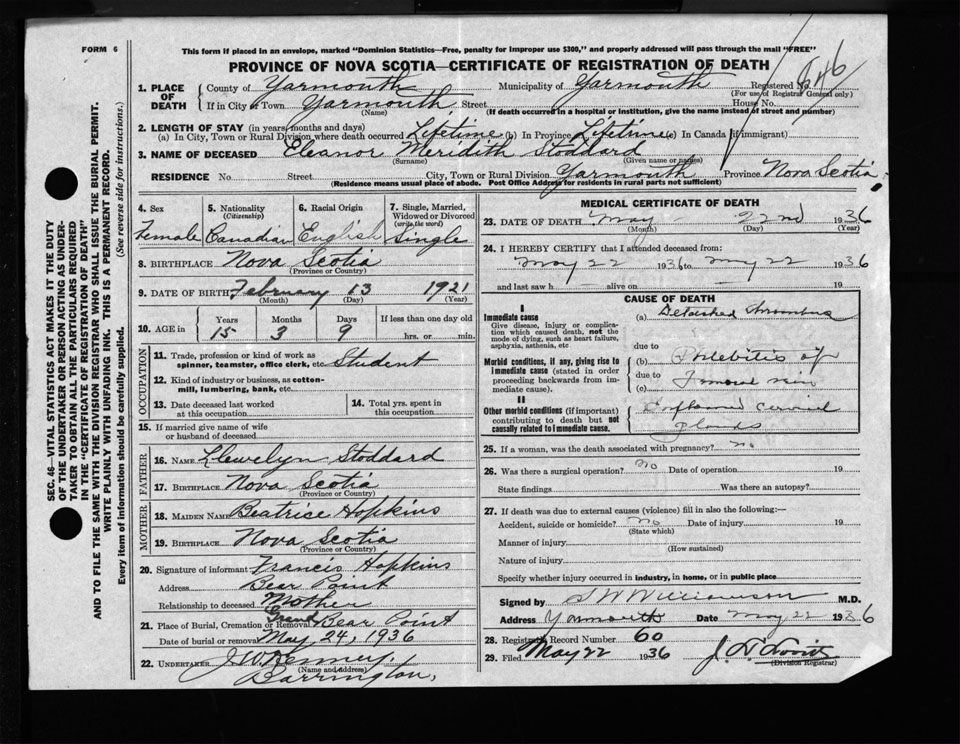 FORM 6
This form if placed in an envelope, marked "Dominion Statistics—Free, penalty for improper use $300," and properly addressed will pass through the mail "FREE"
PROVINCE OF NOVA SCOTIA—CERTIFICATE OF REGISTRATION OF DEATH
1. PLACE OF DEATH
County of Yarmouth Municipality of Yarmouth Registered No. 846
(For use of Registrar General only)
If in City or Town Yarmouth Street House No.
(Name) (If death occurred in a hospital or institution, give the name instead of street and number)
2. LENGTH OF STAY (in years, months and days)
(a) In City, Town or Rural Division where death occurred Lifetime (b) In Province Lifetime (c) In Canada (if immigrant)
3. NAME OF DECEASED Eleanor Meridith Stoddard
(Surname) (Given name or names)
RESIDENCE No. Street City, Town or Rural Division Yarmouth Province Nova Scotia
(Residence means usual place of abode. Post Office Address for residents in rural parts not sufficient)
SEC. 46—VITAL STATISTICS ACT MAKES IT THE DUTY
OF THE UNDERTAKER OR PERSON ACTING AS UNDER-
TAKER TO OBTAIN ALL THE PARTICULARS REQUIRED
IN THE "CERTIFICATE OF REGISTRATION OF DEATH"
AND TO FILE THE SAME WITH THE DIVISION REGISTRAR WHO SHALL ISSUE THE BURIAL PERMIT.
WRITE PLAINLY WITH UNFADING INK. THIS IS A PERMANENT RECORD.
Every item of information should be carefully supplied. (See reverse side for instructions.)
4. Sex Female
5. Nationality (Citizenship) Canadian
6. Racial Origin English
7. Single, Married, Widowed or Divorced (write the word) Single
8. BIRTHPLACE Nova Scotia
(Province or Country)
9. DATE OF BIRTH February 13 1921
(Month) (Day) (Year)
10. AGE in Years Months Days If less than one day old
15 3 9 hrs. or min.
OCCUPATION
11. Trade, profession or kind of work as spinner, teamster, office clerk, etc. Student
12. Kind of industry or business, as cotton-mill, lumbering, bank, etc.
13. Date deceased last worked at this occupation
14. Total yrs. spent in this occupation
15. If married give name of wife or husband of deceased
FATHER
16. NAME Llewelyn Stoddard
17. BIRTHPLACE Nova Scotia
(Province or Country)
MOTHER
18. MAIDEN NAME Beatrice Hopkins
19. BIRTHPLACE Nova Scotia
(Province or Country)
20. Signature of informant Francis Hopkins
Address Bear Point
Relationship to deceased Grand Mother
21. Place of Burial, Cremation or Removal Bear Point
Date of burial or removal May 24, 1936
22. UNDERTAKER J.W. Kenney,
(Name and Address)
Barrington,
MEDICAL CERTIFICATE OF DEATH
23. DATE OF DEATH May 22nd 1936
(Month) (Day) (Year)
24. I HEREBY CERTIFY that I attended deceased from:
May 22 1936 to May 22 1936
and last saw h — alive on — 19
CAUSE OF DEATH
I
Immediate cause
Give disease, injury or complication which caused death, not the mode of dying, such as heart failure, asphyxia, asthenia, etc
(a) Detached thrombus
due to
Morbid conditions, if any, giving rise to immediate cause (stated in order proceeding backwards from immediate cause).
(b) Phlebitis of
due to
(c) Femoral vein
II
Other morbid conditions (if important) contributing to death but not causally related to immediate cause.
Enflamed cervical
glands
25. If a woman, was the death associated with pregnancy? No
26. Was there a surgical operation? No Date of operation 19
State findings Was there an autopsy?
27. If death was due to external causes (violence) fill in also the following:—
Accident, suicide or homicide? No Date of injury 19
(State which)
Manner of injury
(How sustained)
Nature of injury
Specify whether injury occurred in industry, in home, or in public place
Signed by S W Williamson M.D.
Address Yarmouth Date May 22 1936
28. Registrar's Record Number 60
29. Filed May 22 1936
(Division Registrar)